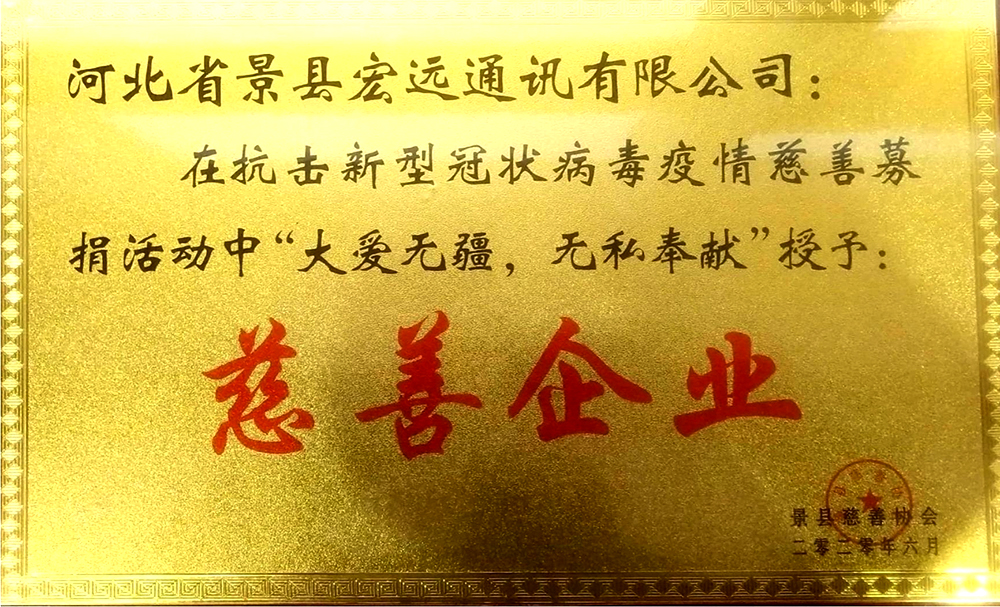 河北省景县宏远通讯有限公司：
在抗击新型冠状病毒疫情慈善募
捐活动中“大爱无疆，无私奉献”授予：
慈善企业
景县慈善协会
二零二零年六月